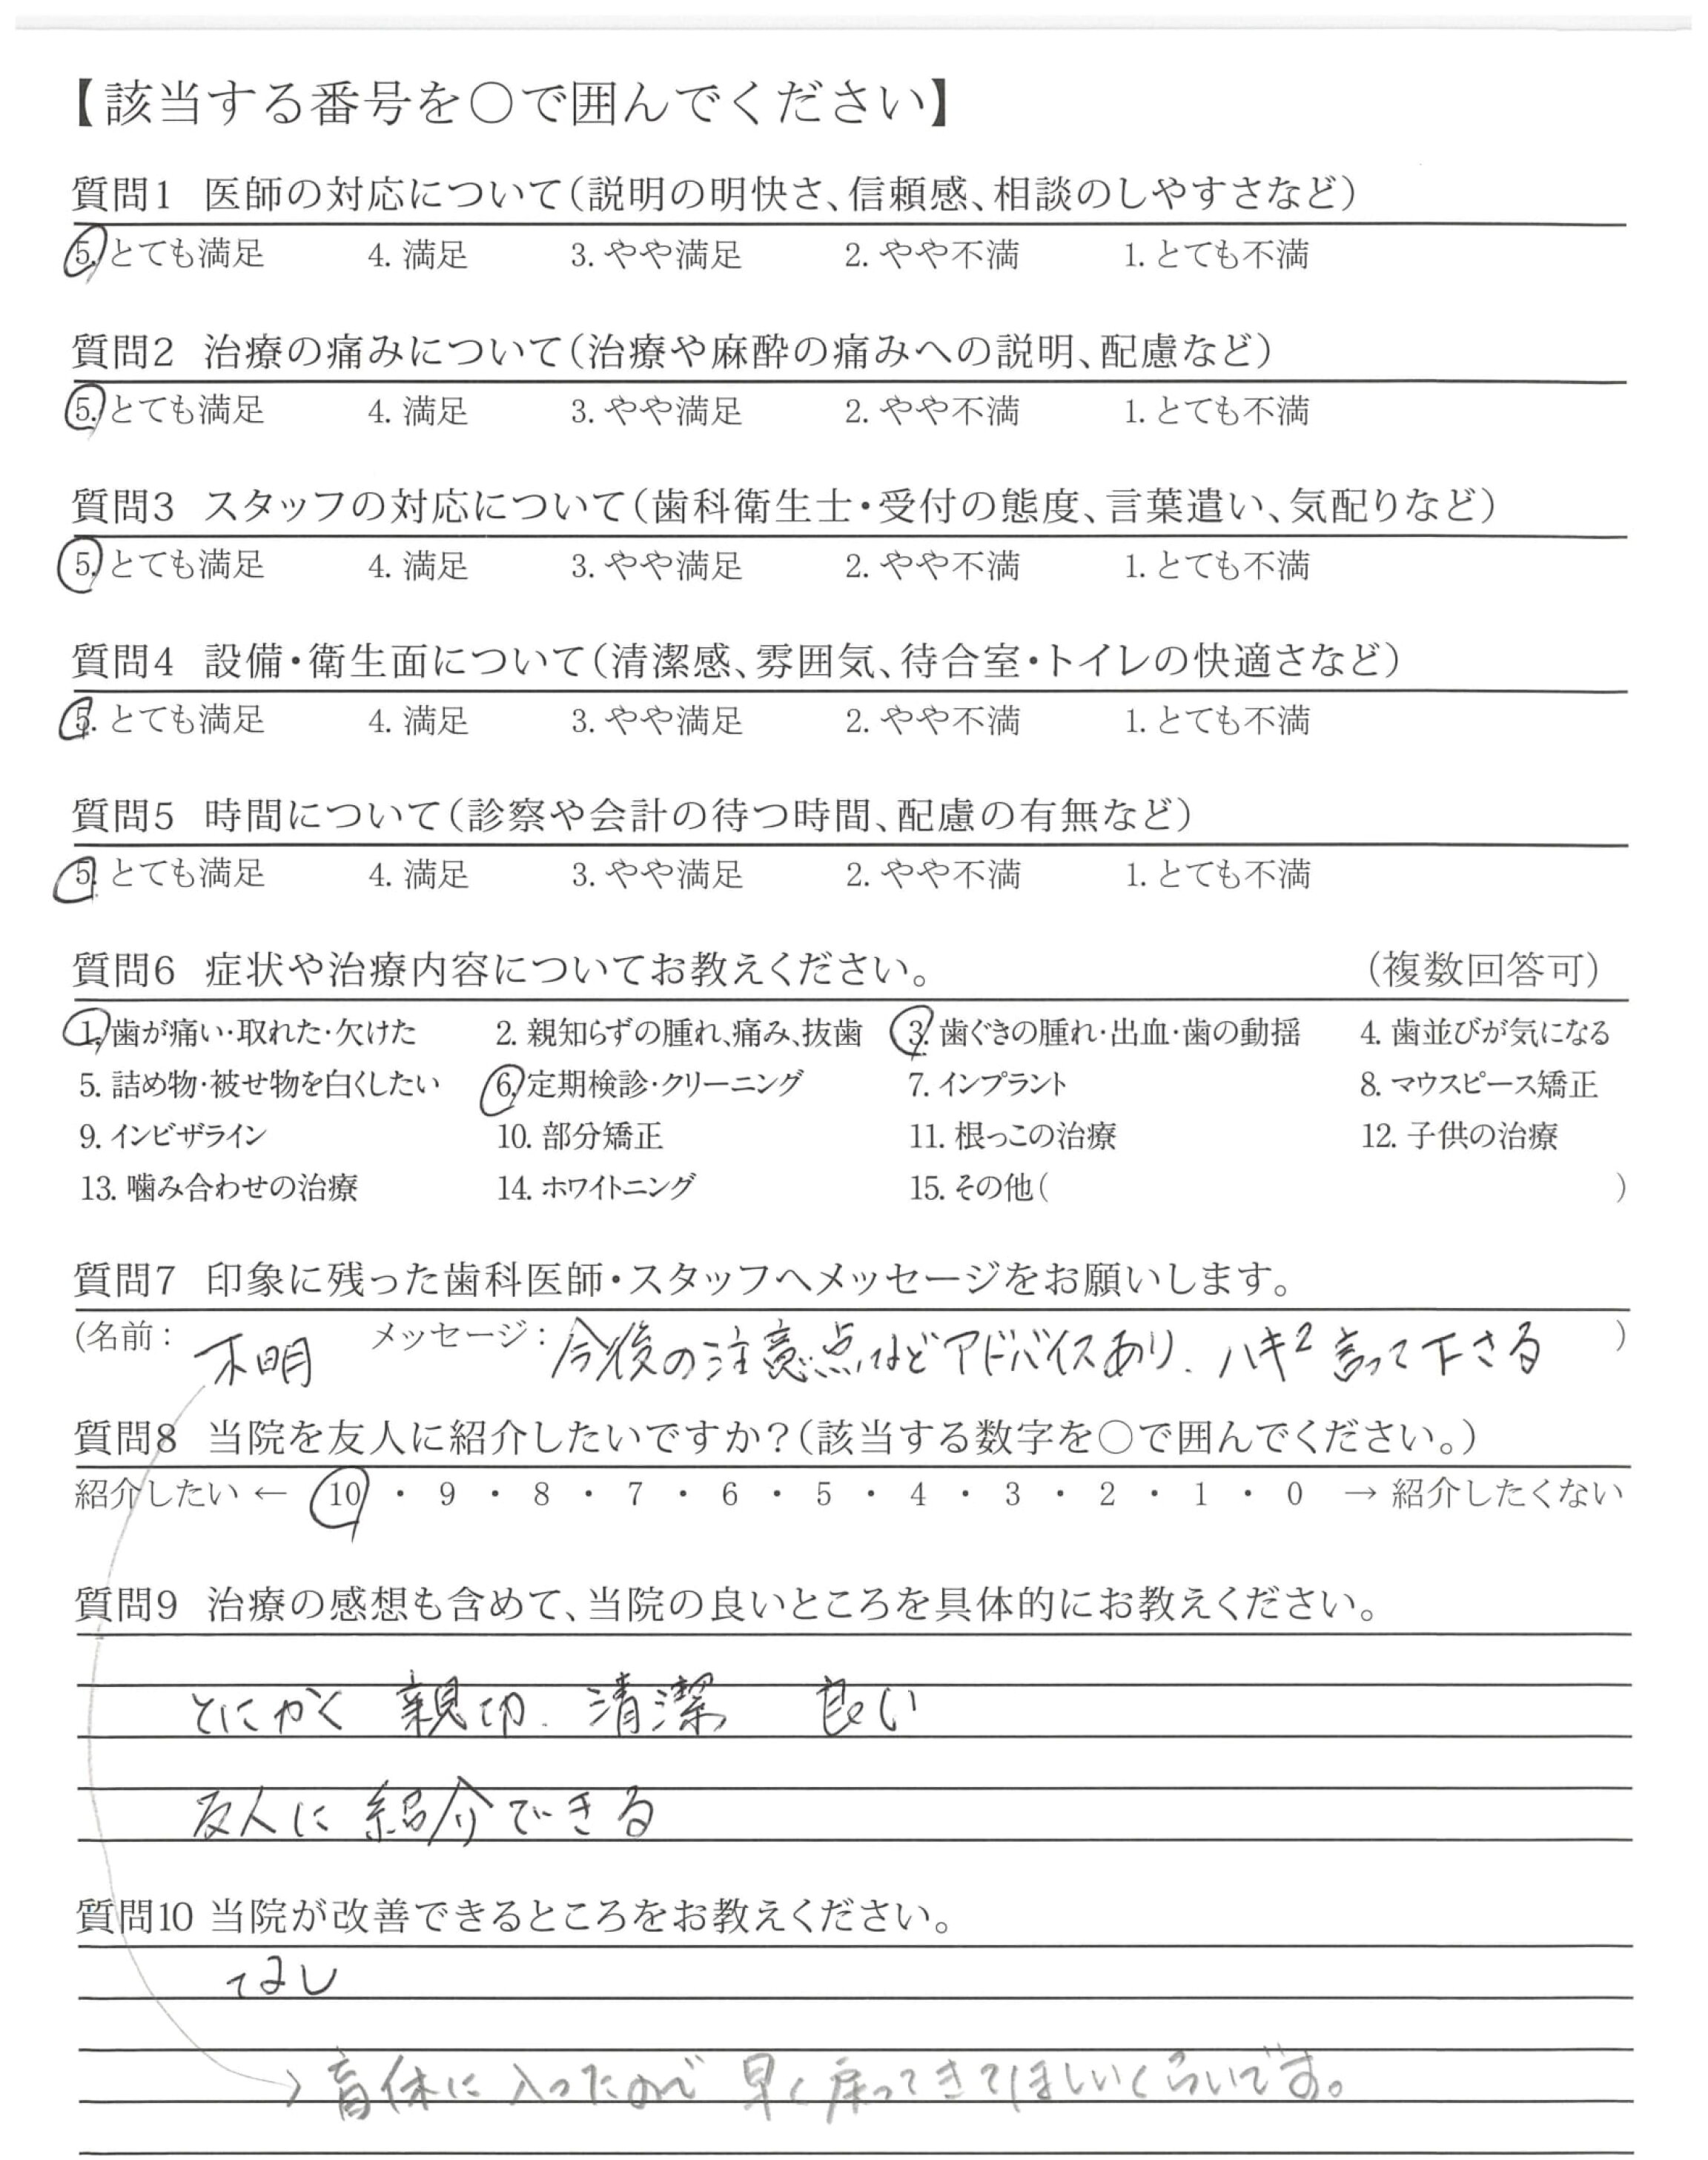 【該当する番号を○で囲んでください】
質問1 医師の対応について(説明の明快さ、信頼感、相談のしやすさなど)
5. とても満足 4. 満足 3. やや満足 2. やや不満 1. とても不満
質問2 治療の痛みについて(治療や麻酔の痛みへの説明、配慮など)
5. とても満足 4. 満足 3. やや満足 2. やや不満 1. とても不満
質問3 スタッフの対応について(歯科衛生士・受付の態度、言葉遣い、気配りなど)
5. とても満足 4. 満足 3. やや満足 2. やや不満 1. とても不満
質問4 設備・衛生面について(清潔感、雰囲気、待合室・トイレの快適さなど)
5. とても満足 4. 満足 3. やや満足 2. やや不満 1. とても不満
質問5 時間について(診察や会計の待つ時間、配慮の有無など)
5. とても満足 4. 満足 3. やや満足 2. やや不満 1. とても不満
質問6 症状や治療内容についてお教えください。 (複数回答可)
1. 歯が痛い・取れた・欠けた 2. 親知らずの腫れ、痛み、抜歯 3. 歯ぐきの腫れ・出血・歯の動揺 4. 歯並びが気になる
5. 詰め物・被せ物を白くしたい 6. 定期検診・クリーニング 7. インプラント 8. マウスピース矯正
9. インビザライン 10. 部分矯正 11. 根っこの治療 12. 子供の治療
13. 噛み合わせの治療 14. ホワイトニング 15. その他( )
質問7 印象に残った歯科医師・スタッフへメッセージをお願いします。
(名前: 不明 メッセージ: 今後の注意点などアドバイスあり、ハキ2言って下さる )
質問8 当院を友人に紹介したいですか?(該当する数字を○で囲んでください。)
紹介したい ← 10 ・ 9 ・ 8 ・ 7 ・ 6 ・ 5 ・ 4 ・ 3 ・ 2 ・ 1 ・ 0 → 紹介したくない
質問9 治療の感想も含めて、当院の良いところを具体的にお教えください。
とにかく 親切、清潔 良い
友人に紹介できる
質問10 当院が改善できるところをお教えください。
なし
育休に入ったので 早く戻ってきてほしいくらいです。